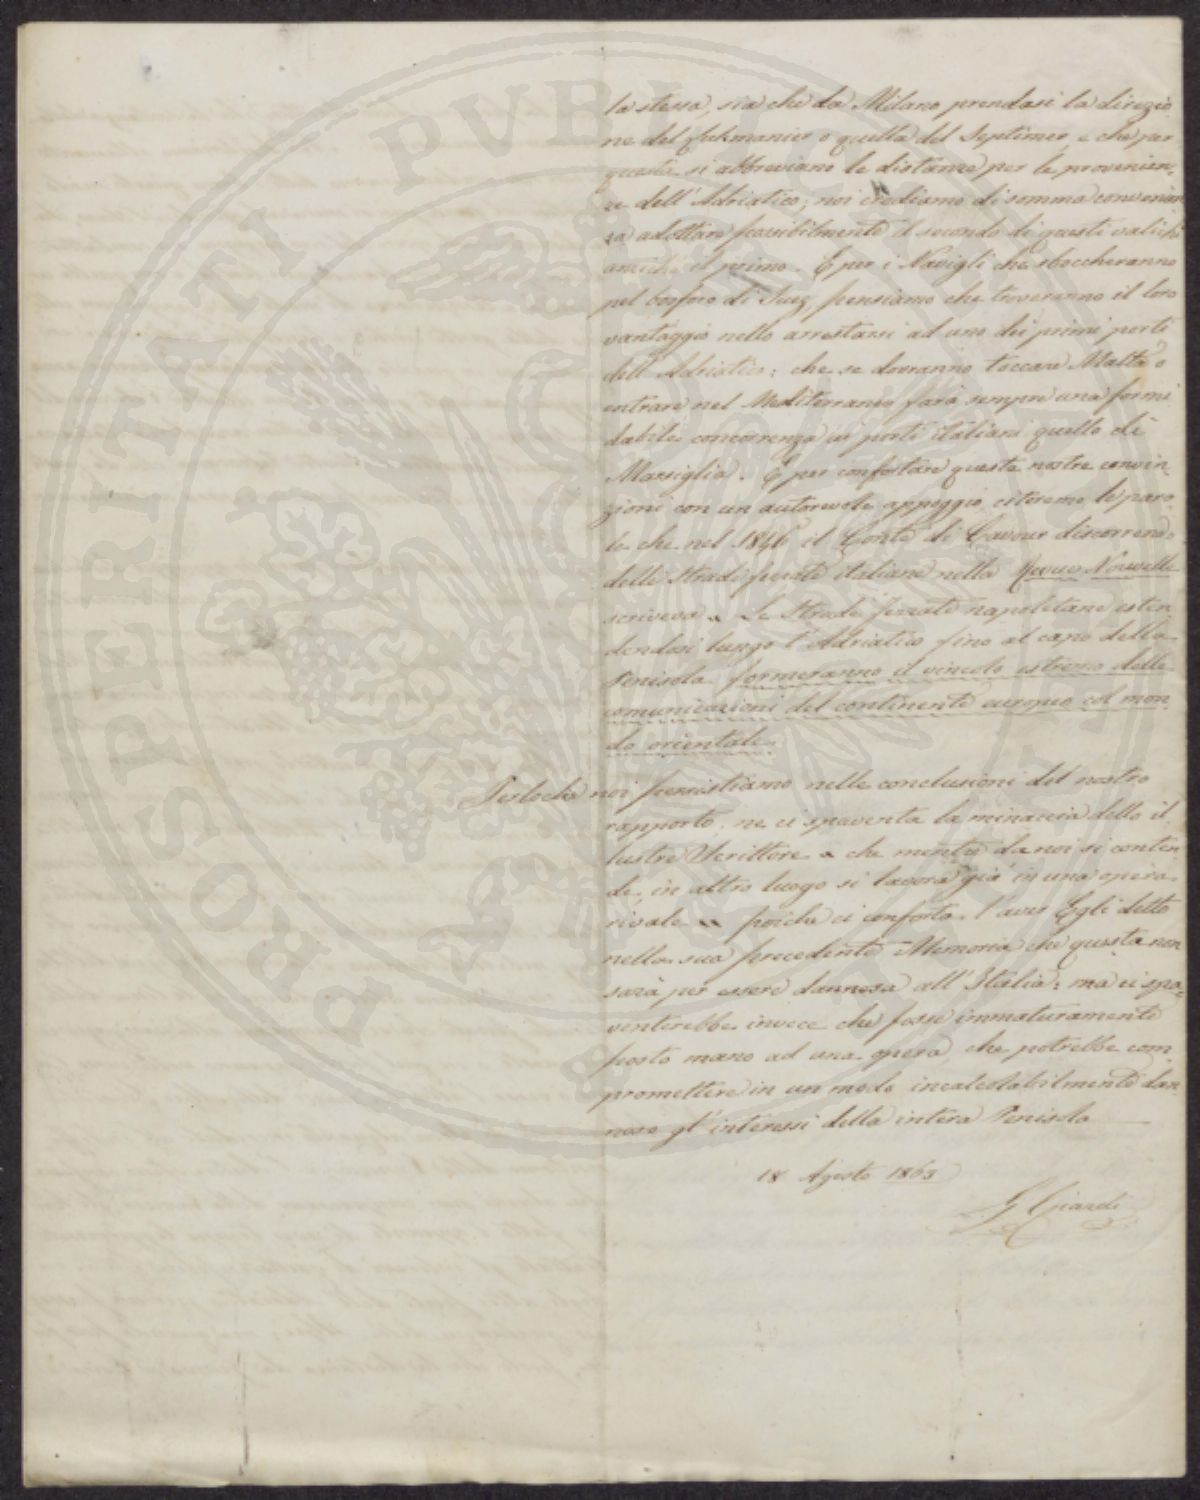 la stessa, sia che da Milano prendasi la direzio
ne del Lukmanier o quella del Septimer, e che per
questo si abbreviano le distanze per le provenien-
ze dell'Adriatico; noi crediamo di somma convenien
za adottare possibilmente il secondo di questi valichi
anziché il primo. E per i Navigli che sboccheranno
pel bosforo di Suez pensiamo che troveranno il loro
vantaggio nello arrestarsi ad uno dei primi porti
dell'Adriatico: che se dovranno toccare Malta o
entrare nel Mediterraneo farà sempre una formi
dabile concorrenza ai porti italiani quello di
Marsiglia. E per confortare queste nostre convin-
zioni con un autorevole appoggio citeremo le paro
le che nel 1846 il Conte di Cavour discorrendo
delle Strade ferrate italiane nella Revue Nouvelle
scriveva « Le Strade ferrate napoletane esten
dendosi lungo l'Adriatico fino al capo della
Penisola formeranno il vincolo estremo delle
comunicazioni del continente europeo col mon-
do orientale.
Perloché noi persistiamo nelle conclusioni del nostro
rapporto, ne ci spaventa la minaccia dello il
lustre Scrittore « che mentre da noi si conten
de, in altro luogo si lavora già in una opera
rivale » poiché ci conforta l'aver Egli detto
nella sua precedente Memoria che questa non
sarà per essere dannosa all'Italia: ma ci spa-
venterebbe invece che fosse immaturamente
posto mano ad una opera, che potrebbe com-
promettere in un modo incalcolabilmente dan
noso gl'interessi della intera Penisola
18 Agosto 1863
G Giardi
PROSPERITATI PVBLICAE